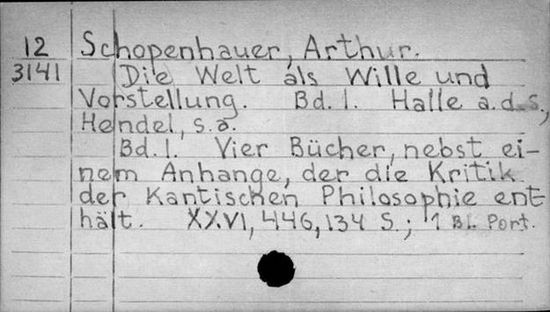 12 Schopenhauer, Arthur.
3141 Die Welt als Wille und
Vorstellung. Bd. 1. Halle a.d.S,
Hendel, s.a.
Bd. 1. Vier Bücher, nebst ei-
nem Anhange, der die Kritik
der Kantischen Philosophie ent
hält. XXVI, 446, 134 S.; 1 Bl. Port.